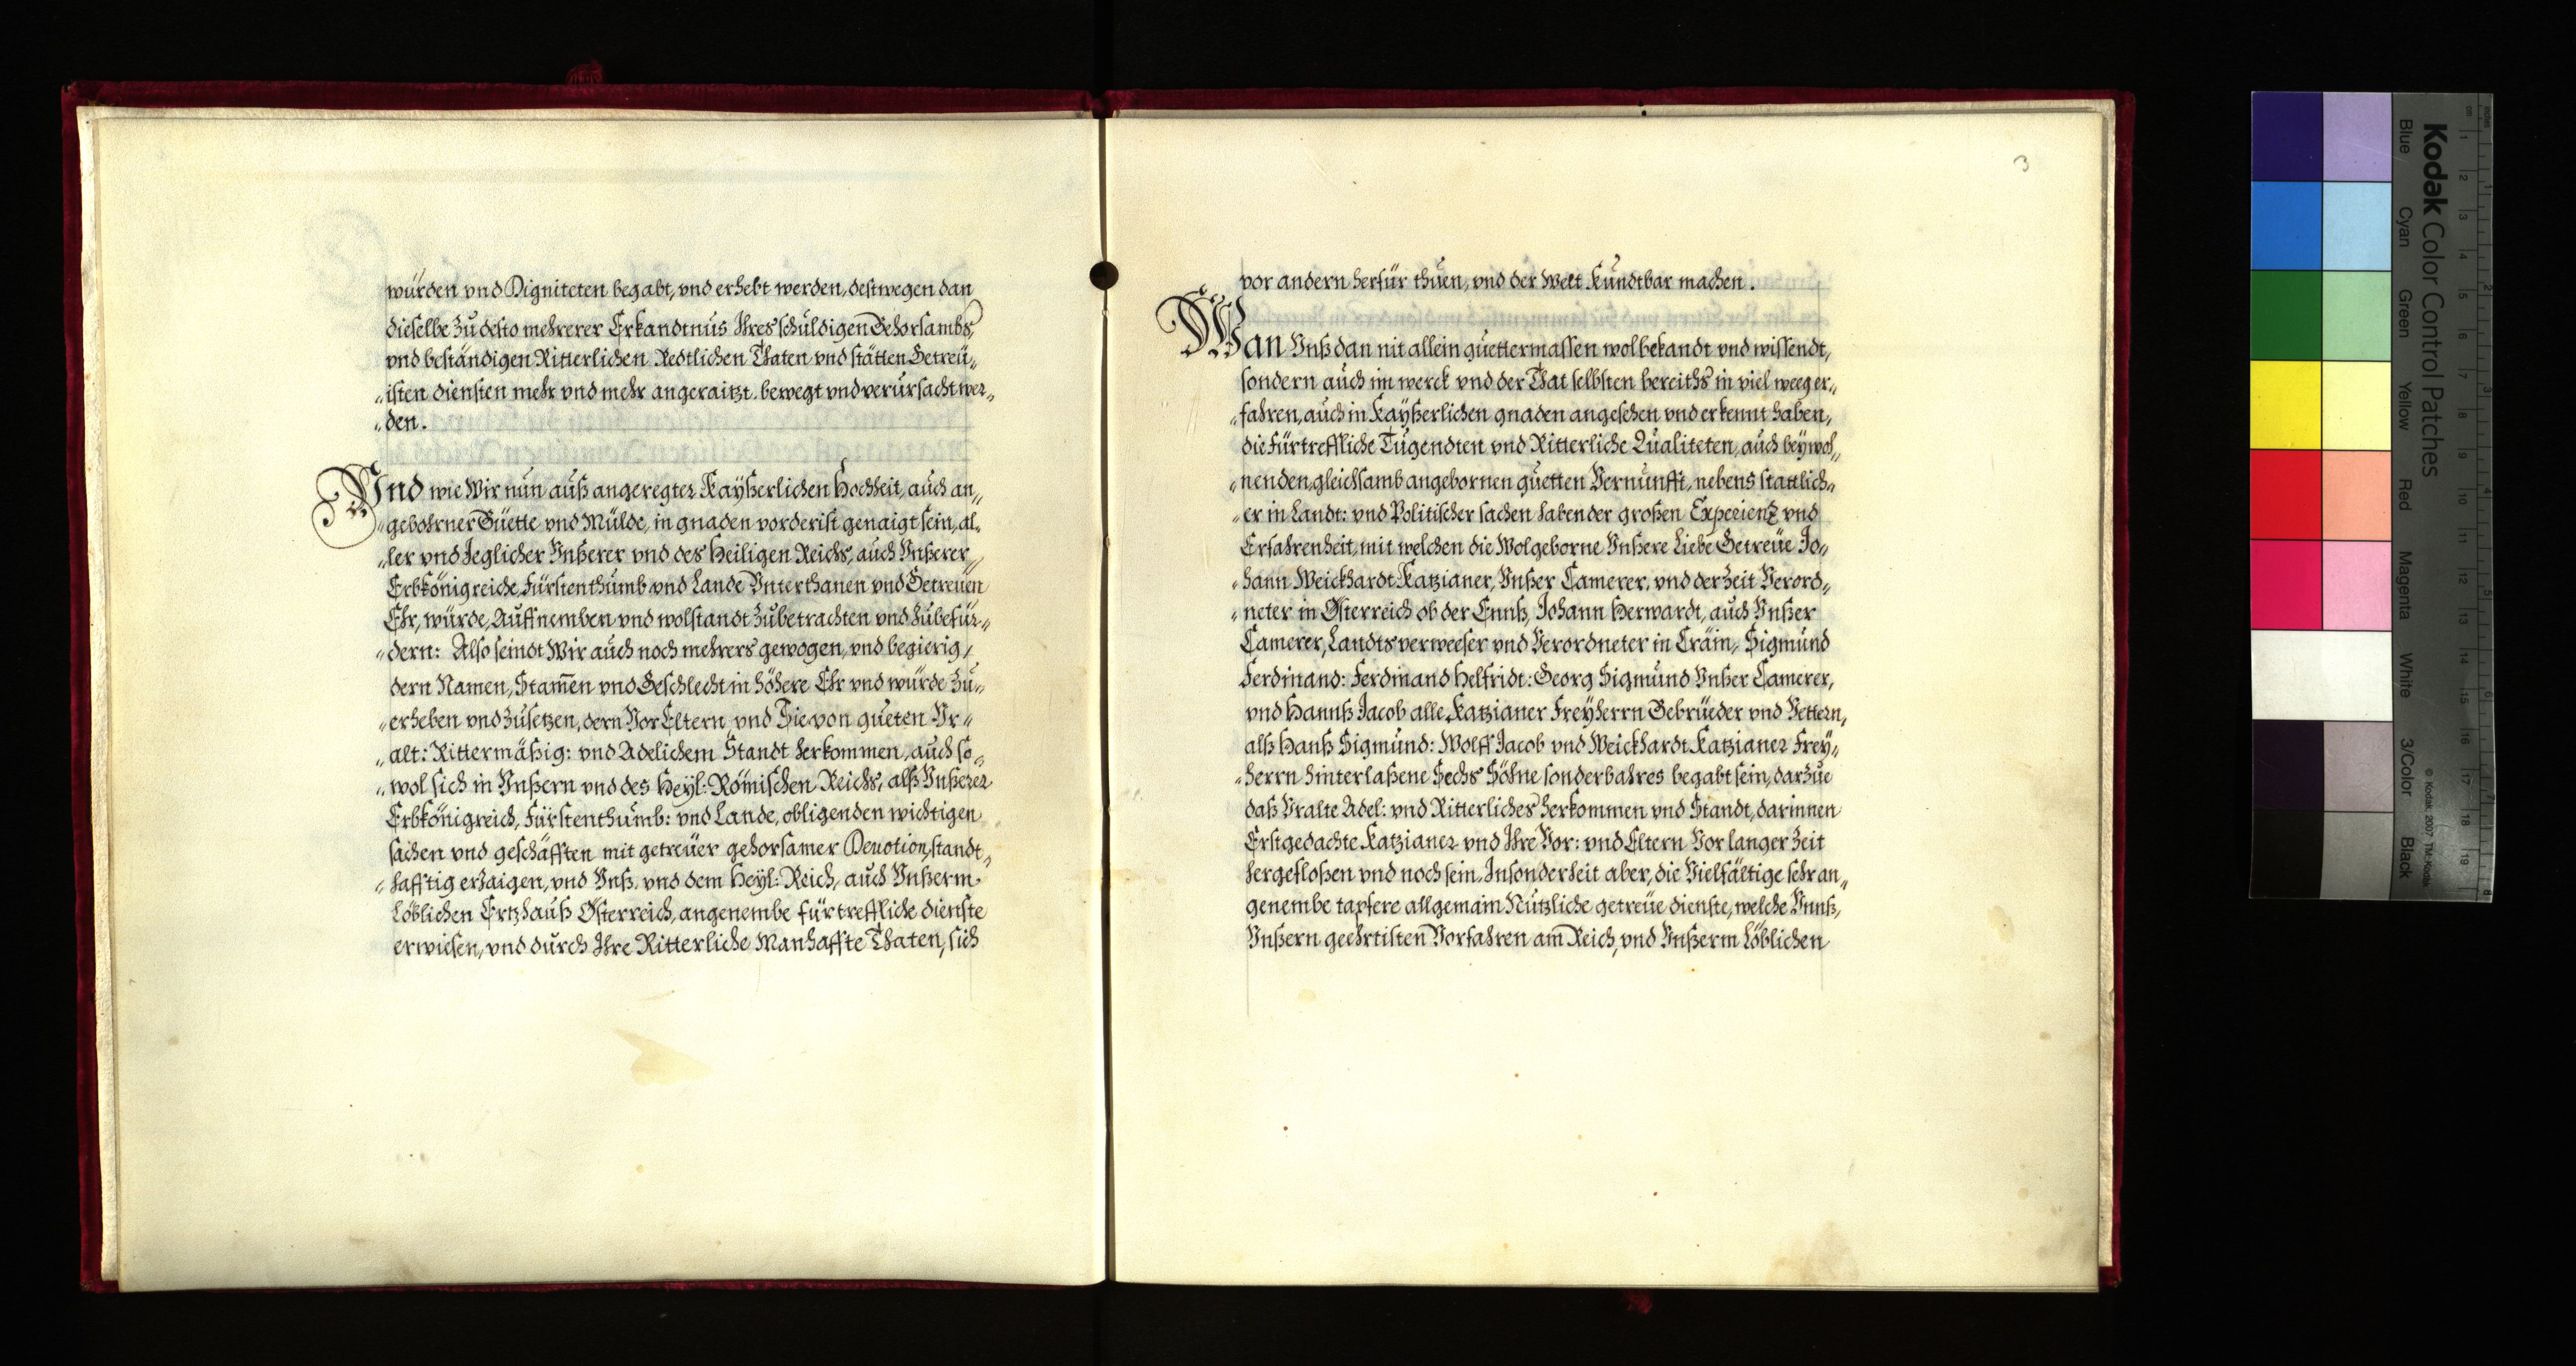 würden vnd Digniteten begabt, vnd erhebt werden, destwegen dan
dieselbe zu desto mehrerer Erkandtnus Ihres schuldigen Gehorsambs,
vnd beständigen Ritterlichen Redtlichen Thaten vnd stätten Getreü„
„isten diensten mehr vnd mehr angeraitzt. bewegt vnd verursacht wer„
„den.
Vnd wie Wir nun auß angeregter Kayßerlichen Hochheit, auch an„
„gebohrner Güette vnd Mülde, in gnaden vorderist genaigt sein, al„
„ler vnd Jeglicher Vnßerer vnd des Heiligen Reichs, auch Vnßerer
Erbkönigreiche, Fürstenthumb vnd Lande Vnterthanen vnd Getreuen
Ehr, würde, Auffnemben vnd wolstandt zubetrachten vnd zubefür„
„dern: Also seindt Wir auch noch mehrers gewogen, vnd begierig,
dern Namen, Stam̄en vnd Geschlecht in höhere Ehr vnd würde zu„
„erheben vnd zusetzen, dern Vor Eltern, vnd Sie von gueten Vr„
„alt: Rittermäßig: vnd Adelichem Standt herkommen, auch so„
„wol sich in Vnßern vnd des Heyl: Römischen Reichs, alß Vnßerer
Erbkönigreich, Fürstenthumb: vnd Lande, obligenden wichtigen
sachen vnd geschäfften mit getreuer gehorsamer Deuotion, standt„
„hafftig erzaigen, vnd Vnß, vnd dem Heyl: Reich, auch Vnßerm
Löblichen Ertzhauß Österreich, angenembe fürtreffliche dienste
erwiesen, vnd durch Ihre Ritterliche Manhaffte Thaten, sich
3
vor andern herfür thuen, vnd der Welt Kundtbar machen.
Wan Vnß dan nit allein guettermassen wol bekandt vnd wissendt,
sondern auch im werck vnd der That selbsten bereiths in viel weeg er„
„fahren, auch in Kayßerlichen gnaden angesehen vnd erkennt haben,
die Fürtreffliche Tugendten vnd Ritterliche Qualiteten, auch beywoh„
„nenden, gleichsamb angebornen guetten Vernunfft, nebens stattlich„
„er in Landt: vnd Politischer sachen habender großen Experienz vnd
Erfahrenheit, mit welchen die Wolgeborne Vnßere Liebe Getreüe Jo„
„hann Weickhardt Katzianer, Vnßer Camerer, vnd der Zeit Verord„
„neter in Österreich ob der Ennß, Johann Herwardt, auch Vnßer
Camerer, Landtsverweeser vnd Verordneter in Crain, Sigmund
Ferdinand: Ferdinand Helfridt: Georg Sigmund Vnßer Camerer,
vnd Hannß Jacob alle Katzianer Freyherrn Gebrüeder vnd Vettern,
alß Hanß Sigmund: Wolff Jacob vnd Weickhardt Katzianer Frey„
„herrn hinterlaßene Sechs Söhne sonderbahres begabt sein, darzue
daß Vralte Adel: vnd Ritterliches herkommen vnd Standt, darinnen
Erstgedachte Katzianer vnd Ihre Vor: vnd Eltern Vor langer Zeit
hergefloßen vnd noch sein. Insonderheit aber, die Vielfältige sehr an„
genembe tapfere allgemain Nutzliche getreüe dienste, welche Vnnß,
Vnßern geehrtisten Vorfahren am̄ Reich, vnd Vnßerm Löblichen
Kodak Color Control Patches
Blue
Cyan
Green
Yellow
Red
Magenta
White
3/Color
Black
© Kodak, 2007 TM: Kodak